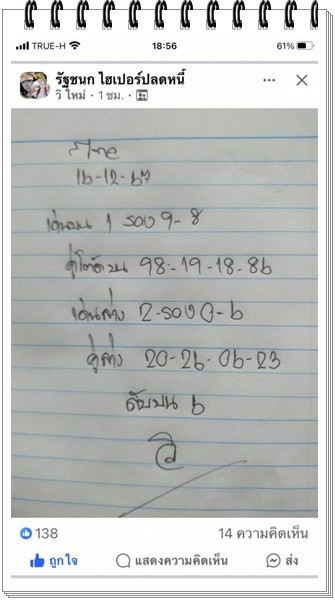 TRUE-H 18:56 61%
รัฐชนก ไฮเปอร์ปลดหนี้
วิ ใหม่ · 1 ชม. ·
16-12-67
เด่นบน 1 รอง 9-8
คู่โต๊ดบน 98-19-18-86
เด่นล่าง 2-รอง 0-6
คู่ล่าง 20-26-06-23
ดับบน 6
วิ
138 14 ความคิดเห็น
ถูกใจ แสดงความคิดเห็น ส่ง